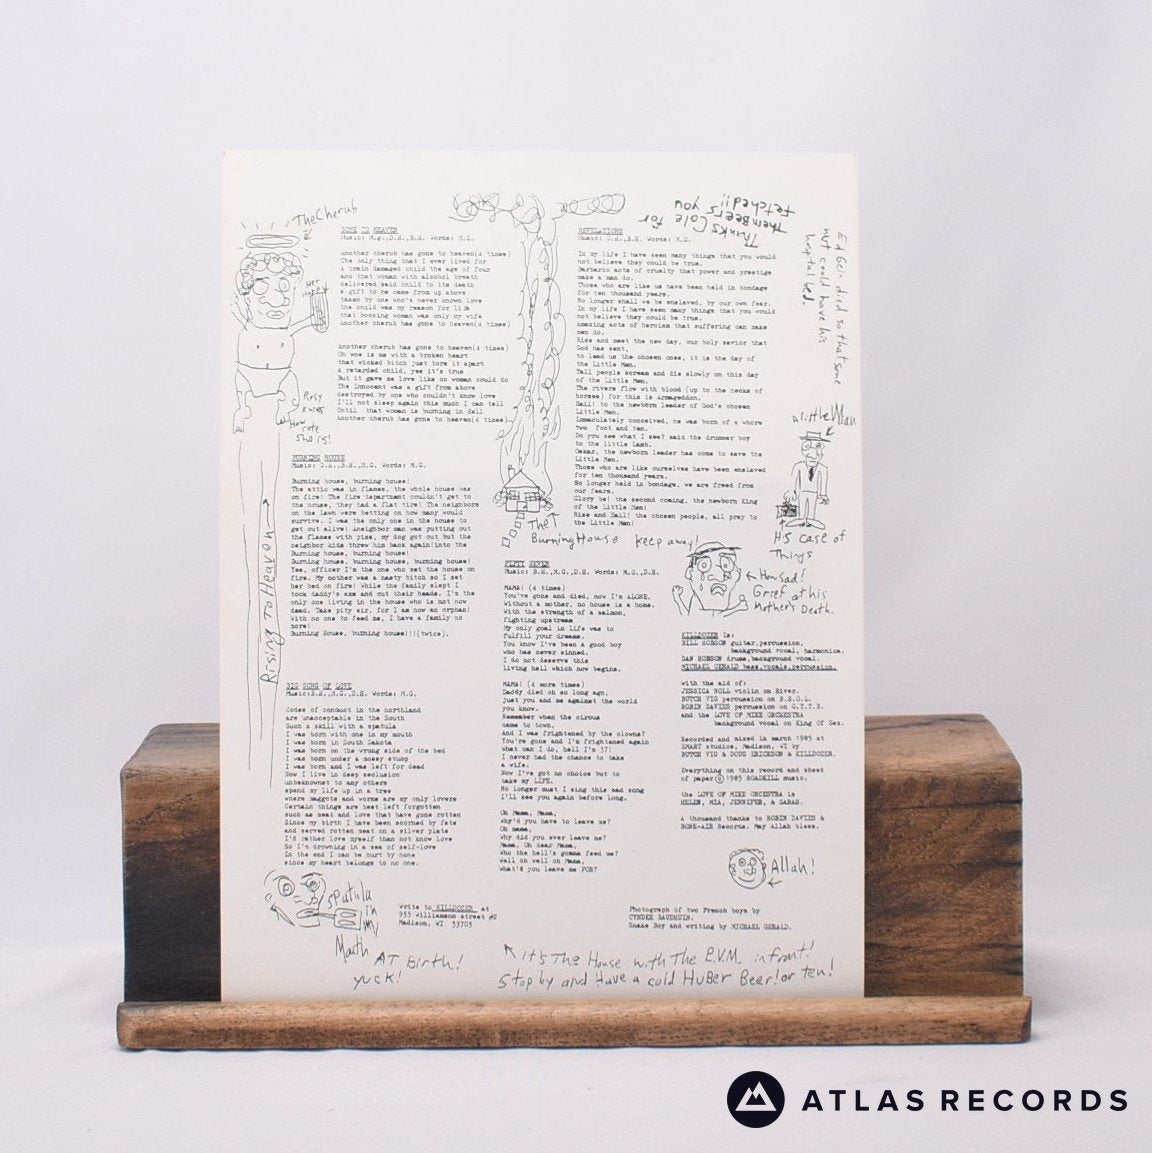 The Cherub
Her Harp
Rosy Knees
How cute she is!
GONE TO HEAVEN
Music: M.G.,D.H.,B.H. Words: M.G.
Another cherub has gone to heaven(4 times)
The only thing that I ever lived for
A brain damaged child the age of four
and that woman with alcohol breath
delivered said child to its death
a gift to me came from up above
taken by one who's never known love
the child was my reason for life
that boozing woman was only my wife
Another cherub has gone to heaven(4 times)
Another cherub has gone to heaven(4 times)
Oh woe is me with a broken heart
that wicked bitch just tore it apart
A retarded child, yes it's true
But it gave me love like no woman could do
The Innocent was a gift from above
destroyed by one who couldn't know love
I'll not sleep again this much I can tell
Until that woman is burning in Hell
Another cherub has gone to heaven(4 times)
Rising To Heaven
BURNING HOUSE
Music: D.H.,B.H.,M.G. Words: M.G.
Burning house, burning house!
The attic was in flames, the whole house was
on fire! The fire department couldn't get to
the house, they had a flat tire! The neighbors
on the lawn were betting on how many would
survive. I was the only one in the house to
get out alive! Aneighbor man was putting out
the flames with piss, my dog got out but the
neighbor kids threw him back again!into the
Burning house, burning house!
Burning house, burning house, burning house!
Yes, officer I'm the one who set the house on
fire. My mother was a nasty bitch so I set
her bed on fire! While the family slept I
took daddy's axe and cut their heads. I'm the
only one living in the house who is not now
dead. Take pity sir, for I am now an orphan!
With no one to feed me, I have a family no
more!
Burning House, burning house!!!(twice).
BIG SONG OF LOVE
Music:B.H.,M.G.,D.H. Words: M.G.
Codes of conduct in the northland
are unacceptable in the South
Such a skill with a spatula
I was born with one in my mouth
I was born in South Dakota
I was born on the wrong side of the bed
I was born under a mossy stump
I was born and I was left for dead
Now I live in deep seclusion
unbeknownst to any others
spend my life up in a tree
where maggots and worms are my only lovers
Certain things are best left forgotten
such as meat and love that have gone rotten
Since my birth I have been scorned by fate
and served rotten meat on a silver plate
I'd rather love myself than not know love
So I'm drowning in a sea of self-love
In the end I can be hurt by none
since my heart belongs to no one.
Spatula
in
my
Mouth AT Birth!
yuck!
Write to KILLDOZER at
933 williamson street #2
Madison, WI 53703
The Burning House
keep away!
REVELATIONS
Music: D.H.,B.H. Words: M.G.
In my life I have seen many things that you would
not believe they could be true.
Barbaric acts of cruelty that power and prestige
make a man do.
Those who are like us have been held in bondage
for ten thousand years.
No longer shall we be enslaved, by our own fear.
In my life I have seen many things that you would
not believe they could be true.
Amazing acts of heroism that suffering can make
men do.
Rise and meet the new day, our holy savior that
God has sent,
to lead us the chosen ones, it is the day of
the Little Men.
Tall people scream and die slowly on this day
of the Little Men.
The rivers flow with blood (up to the necks of
horses) for this is Armageddon.
Hail! to the newborn leader of God's chosen
Little Men.
Immaculately conceived, he was born of a whore
two foot and ten.
Do you see what I see? said the drummer boy
to the little lamb.
Oskar, the newborn leader has come to save the
Little Men.
Those who are like ourselves have been enslaved
for ten thousand years.
No longer held in bondage, we are freed from
our fears.
Glory be! the second coming, the newborn King
of the Little Men!
Rise and Hail! the chosen people, all pray to
the Little Men!
Thanks Cole for
them Beers you
fetched!!
Ed Gein died so that some
nut could have his
hospital bed.
A Little Man
His case of
Things
FIFTY SEVEN
Music: B.H.,M.G.,D.H. Words: M.G.,D.H.
MAMA! (4 times)
You've gone and died, now I'm ALONE.
Without a mother, no house is a home.
With the strength of a salmon,
fighting upstream
My only goal in life was to
fulfill your dreams.
You know I've been a good boy
who has never sinned.
I do not deserve this
living hell which now begins.
MAMA! (4 more times)
Daddy died oh so long ago,
just you and me against the world
you know.
Remember when the circus
came to town,
And I was frightened by the clowns?
You're gone and I'm frightened again
What can I do, hell I'm 57!
I never had the chance to take
a wife.
Now I've got no choice but to
take my LIFE.
No longer must I sing this sad song
I'll see you again before long.
Oh Mama, Mama,
Why'd you have to leave me?
Oh mama,
Why did you ever leave me?
Mama, Oh dear Mama,
Who the hell's gonna feed me?
Well oh well oh Mama,
What'd you leave me FOR?
How sad!
Grief at his
Mother's Death.
KILLDOZER is:
BILL HOBSON guitar,percussion,
background vocal, harmonica.
DAN HOBSON drums,background vocal.
MICHAEL GERALD bass,vocals,percussion.
with the aid of:
JESSICA NOLL violin on River.
BUTCH VIG percussion on B.S.O.L.
ROBIN DAVIES percussion on G.T.T.B.
and the LOVE OF MIKE ORCHESTRA
background vocal on King Of Sex.
Recorded and mixed in march 1985 at
SMART studios, Madison, WI by
BUTCH VIG & DOUG ERICKSON & KILLDOZER.
Everything on this record and sheet
of paper © 1985 ROADKILL music.
the LOVE OF MIKE ORCESTRA is
HELEN, MIA, JENNIFER, & SARAH.
A thousand thanks to ROBIN DAVIES &
BONE-AIR Records. May Allah bless.
Allah!
Photograph of two French boys by
CYNDEE BAUDHUIN.
Snake Boy and writing by MICHAEL GERALD.
it's The House with The P.V.M. in front!
Stop by and Have a cold HUBER Beer! or ten!
ATLAS RECORDS